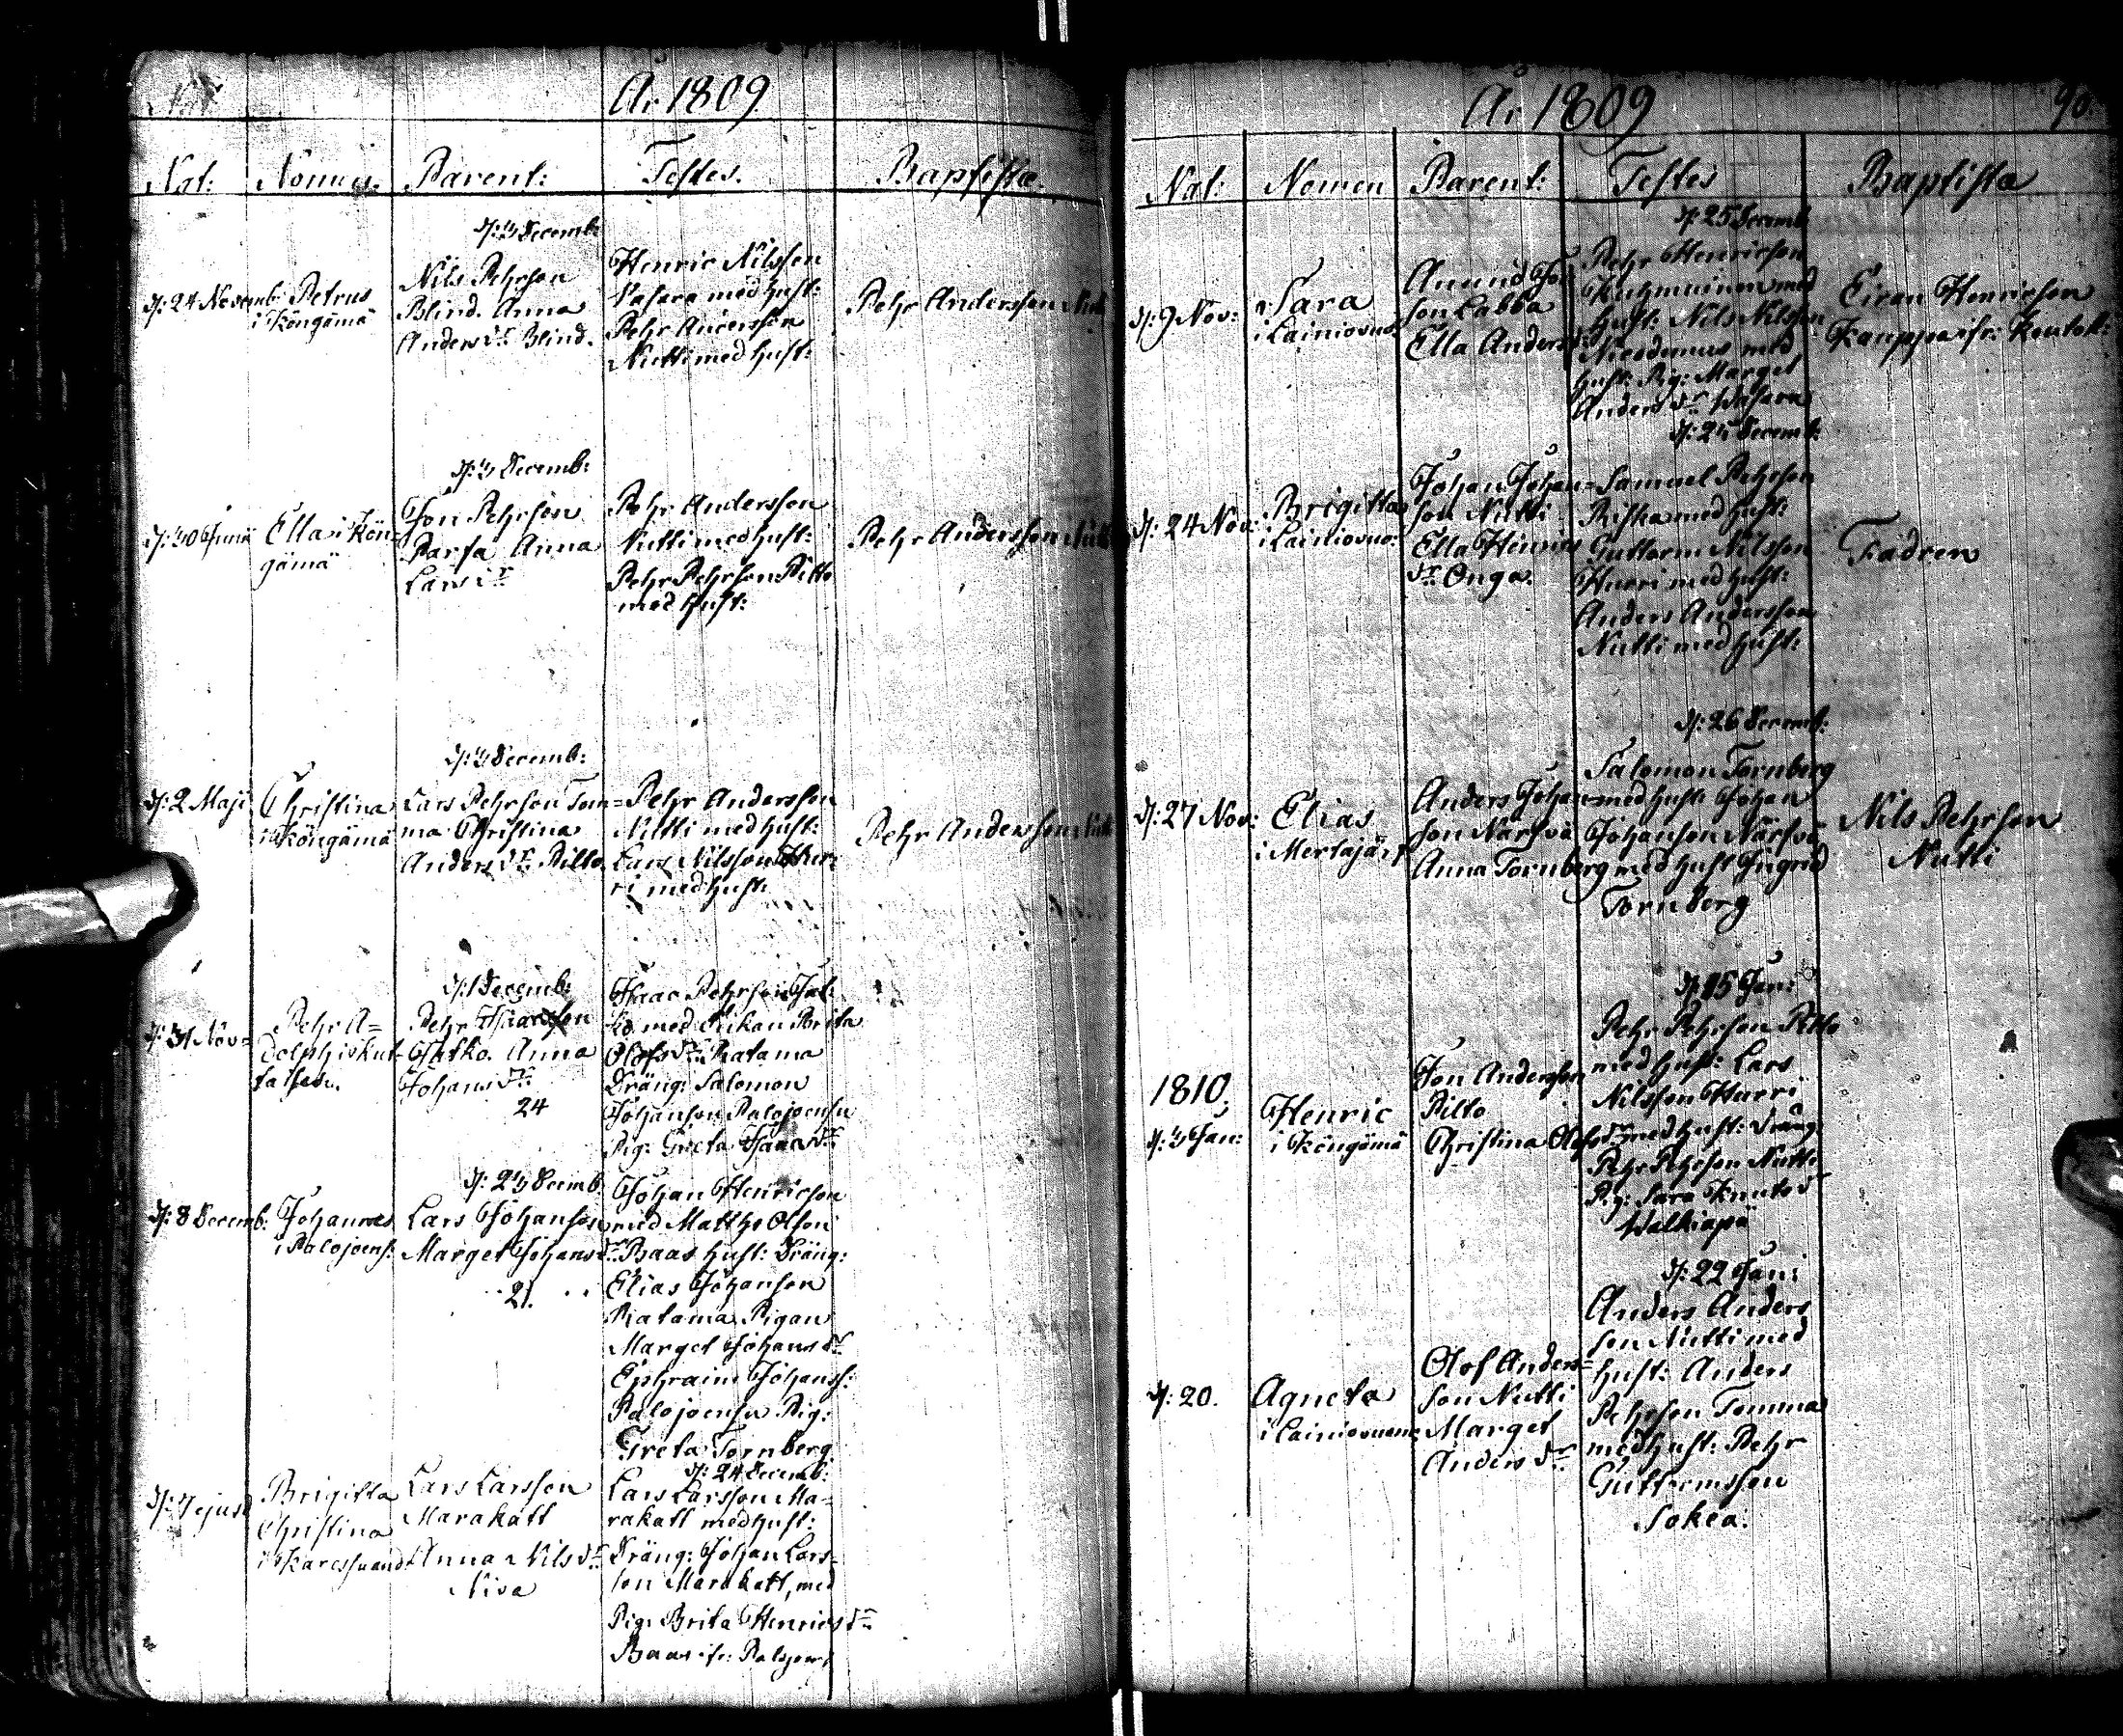 A: 1809
Nat: Nomen. Parent: Testes. Baptista.
d: 3 Decemb:
d: 24 Novemb: Petrus
i Köngämä
Nils Pehrson
Blind. Anna
Anders dr. Blind.
Henric Nilsson
Vasara med hust:
Pehr Andersson
Nutti med hust:
Pehr Andersson Nutti
d: 3 Decemb:
d: 30 Junii
Ella i Kön-
gämä
Jon Pehrson
Parfa Anna
Lars dr.
Pehr Andersson
Nutti med hust:
Pehr Pehrson Pilto
med hust:
Pehr Andersson Nutti
d: 3 Decemb:
d: 2 Maji
Christina
i Köngämä
Lars Pehrson Tom=
ma Christina
Anders dr. Pilto
Pehr Andersson
Nutti med hust:
Lars Nilsson Hur=
ri med hust:
Pehr Andersson Nutti
Decemb:
Nov=
Pehr A=
dolph i Kut-
tainen.
Pehr Isaacson
Jatko. Anna
Johans dr.
24
Isaac Pehrson Jat-
ko med Pikan Brita
Olofs dr. Ratama
Dräng: Salomon
Johanson Palojoensu
Pig: Greta Isaacs dr
d: 23 Decemb:
d: 8 Decemb:
Johannes
i Palojoens:
Lars Johanson
Marget Johans dr.
21.
Johan Henricson
med Matths Olsons
Baas hust: Dräng:
Elias Johanson
Ratama Pigan
Marget Johans dr
Ephraim Johanss:
Palojoensu Pig:
Greta Tornberg
d: 24 Decemb:
d: 7 ejusd
Brigitta
Christina
i Karessuand
Lars Larsson
Marakatt
Anna Nils dr.
Niva
Lars Larsson Ma-
rakatt med hust:
Dräng: Johan Lars-
son Marakatt, med
Pig: Brita Henrics dr
Baas ifr: Palojoens:
A: 1809
90.
Nat: Nomen Parent: Testes Baptista
d: 25 Decemb
d: 9 Nov:
Sara
i Lainiovuo:
Amund Jon
son Labba
Ella Anders dr
Pehr Henricson
Kuhmuinen med
hust: Nils Nilsson
Niesdnmus med
hust: Pig: Marget
Anders dr Wasara
Eiran Henricson
Kauppa ifr: Kentok:
d: 25 Decemb:
d: 24 Nov:
Brigitta
i Lainiovuo:
Johan Johan=
son Nutti
Ella Henrics
dr. Onga.
Samuel Pehrson
Riska med hust:
Guttorm Nilsson
Hurri med hust:
Anders Andersson
Nutti med hust:
Fadren
d: 26 Decemb:
d: 27 Nov:
Elias
i Mertajärf
Anders Johan=
son Närfvä
Anna Tornberg
Salomon Tornberg
med hust: Johan
Johanson Närfvä
med hust Ingrid
Tornberg
Nils Pehrson
Nutti
d: 15 Jan:
1810.
d: 3 Jan:
Henric
i Köngämä
Jon Anderson
Pilto
Christina Olofs dr
Pehr Pehrson Pilto
med hust: Lars
Nilsson Hurri
med hust: Dräng:
Pehr Pehrson Nutti
Pig: Sara Knuts dr
Walkiapä
d: 22 Jan:
d: 20.
Agneta
i Lainiovuoma
Olof Anders=
son Nutti
Marget
Anders dr.
Anders Anders
son Nutti med
hust: Anders
Pehrson Tomma
med hust: Pehr
Guttormsson
Sokea.